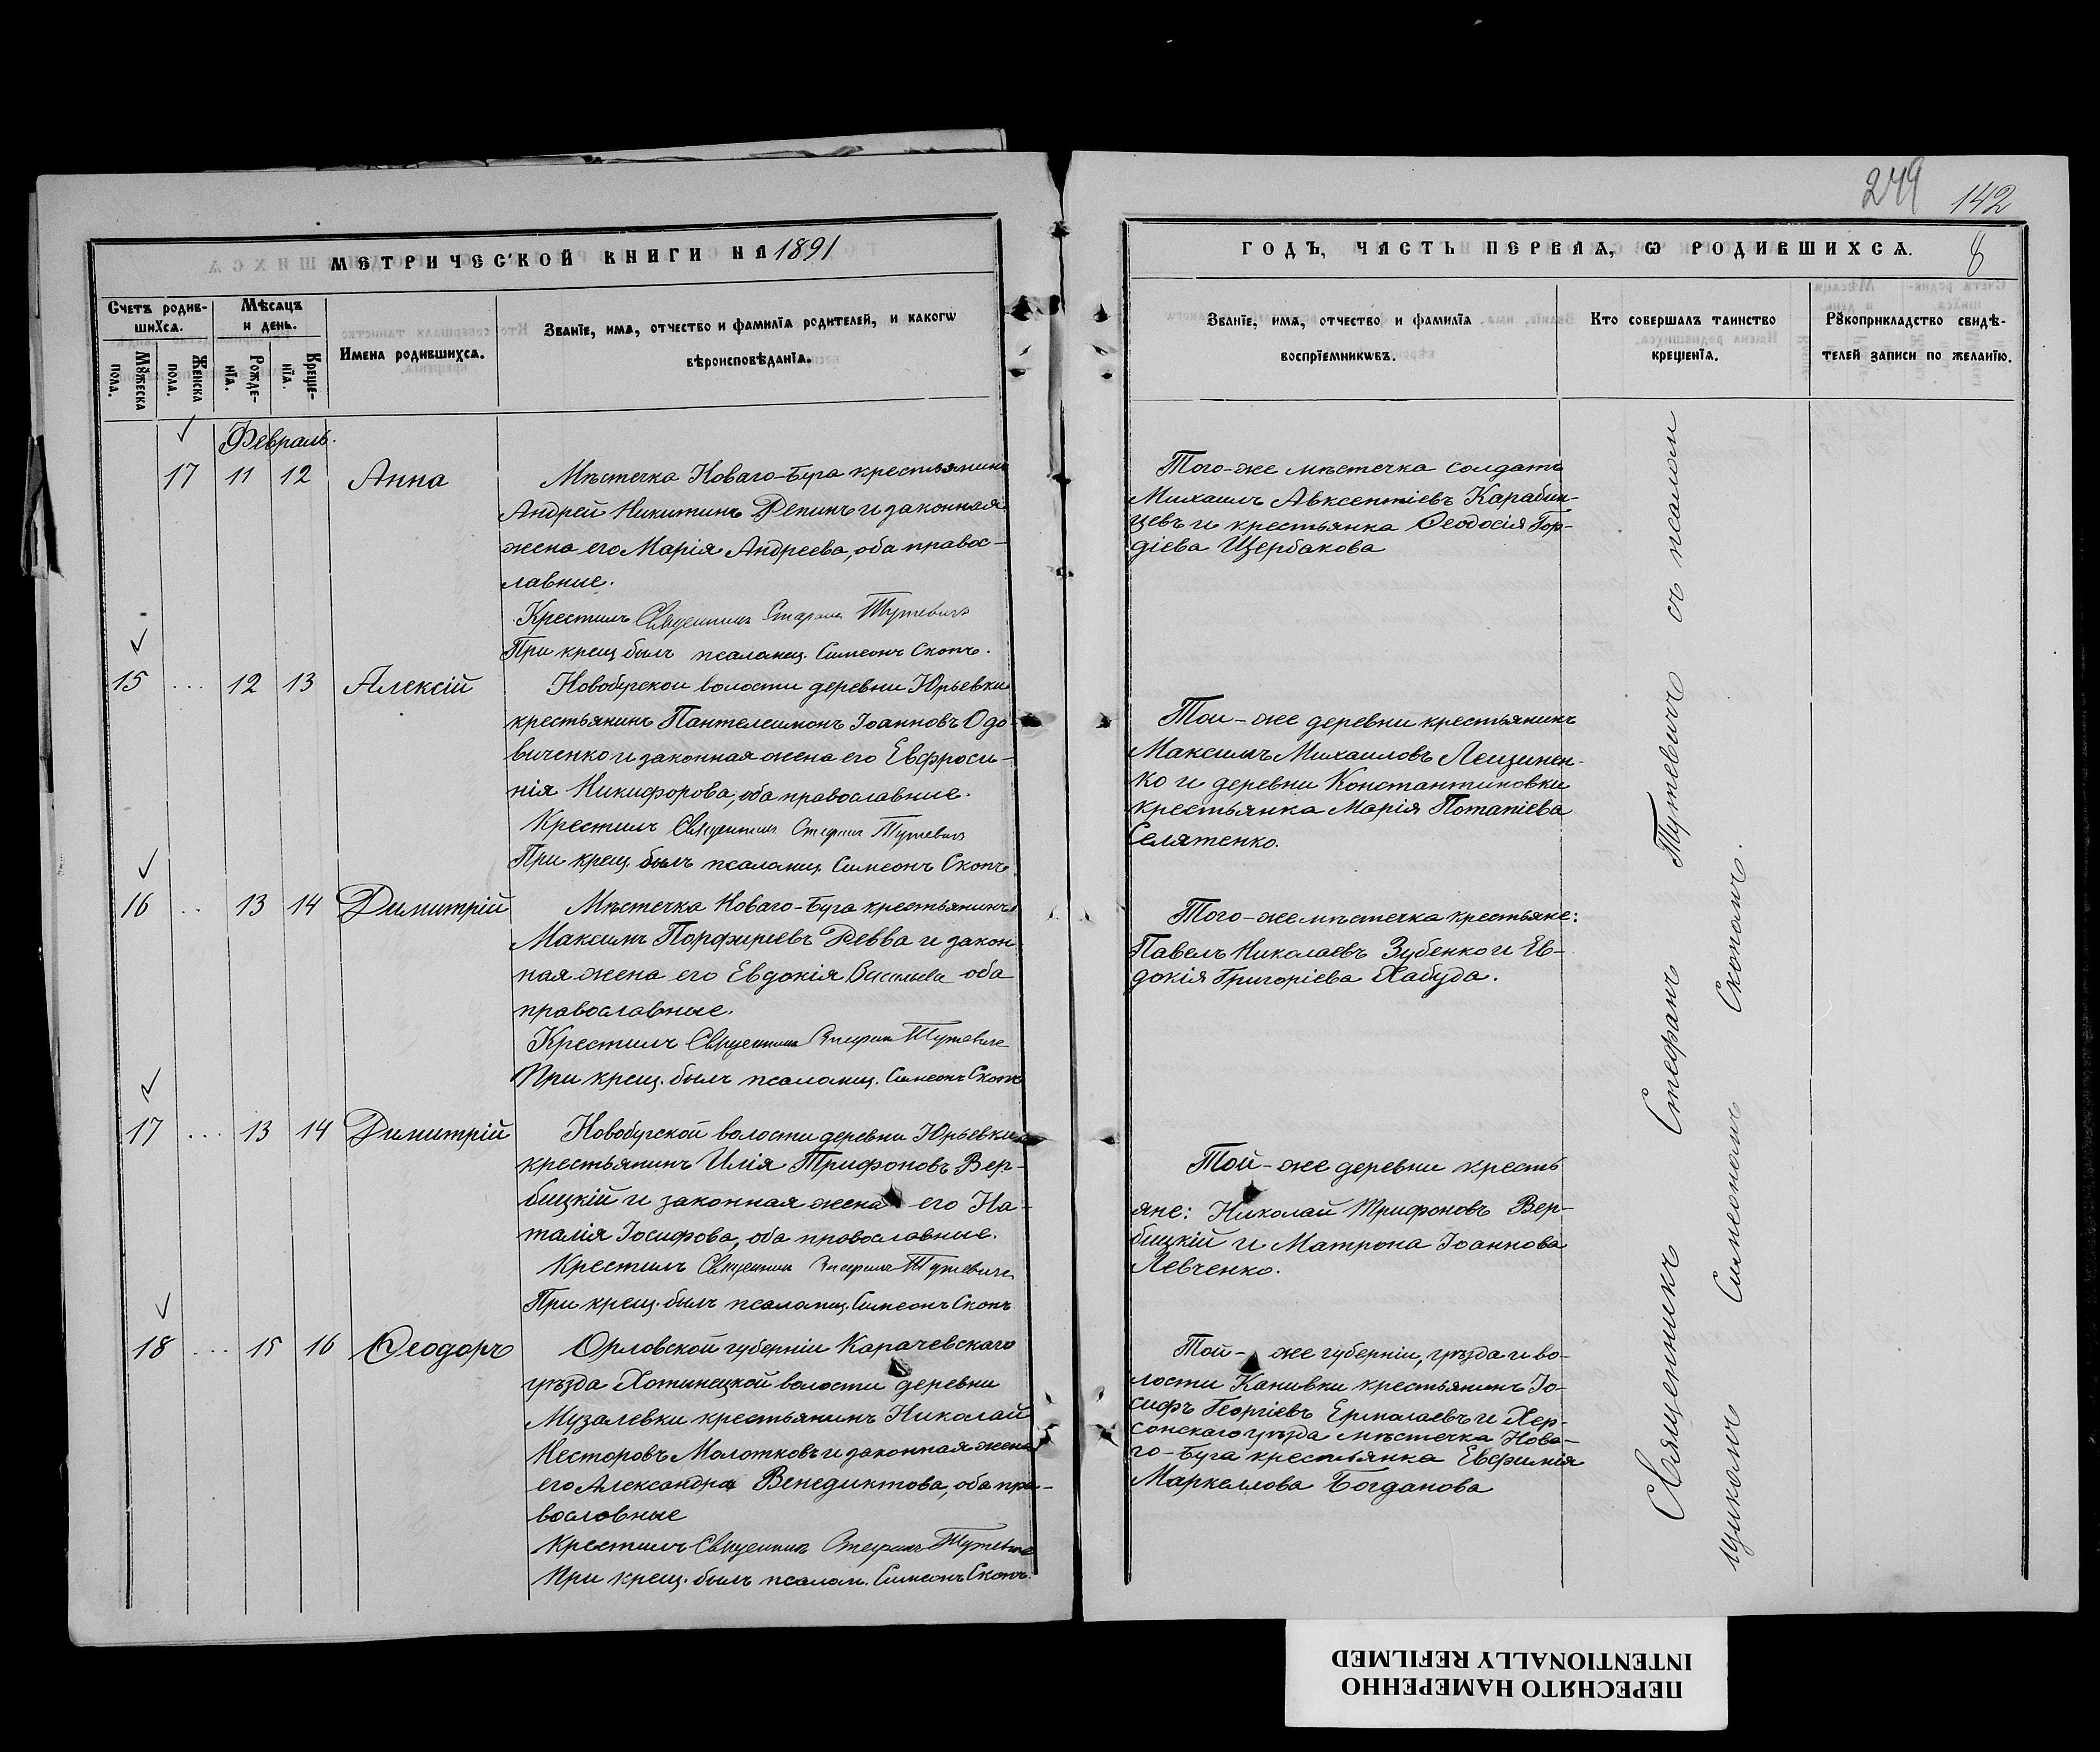 249 142
МЕТРИЧЕСКОЙ КНИГИ НА 1891
ГОДЪ, ЧАСТЬ ПЕРВАЯ, Ѡ РОДИВШИХСЯ. 8
Счетъ родив-
шихся.
Мѣсяцъ
и день.
Мꙋжеска
пола.
Женска
пола.
Рожде-
нїя.
Креще-
нїя.
Имена родившихся.
Званїе, имя, отчество и фамилїя родителей, и какогѡ
вѣроисповѣданїя.
Званїе, имя, отчество и фамилїя
воспрїемникѡвъ.
Кто совершалъ таинство
крещенїя.
Рꙋкоприкладство свидѣ-
телей записи по желанїю.
Февраль.
17 11 12 Анна
Мѣстечка Новаго-Буга крестьянинъ
Андрей Никитинъ Репинъ и законная
жена его Марія Андреева, оба правос-
лавные.
Крестилъ Священникъ Стефанъ Тутевичъ
При крещ. былъ псаломщ. Симеонъ Скопъ.
Того-же мѣстечка солдатъ
Михаилъ Авксентіевъ Карабин-
цевъ и крестьянка Ѳеодосія Гор-
діева Щербакова
15 ... 12 13 Алексій
Новобугской волости деревни Юрьевки
крестьянинъ Пантелеимонъ Іоанновъ Одо-
виченко и законная жена его Евфроси-
нія Никифорова, оба православные.
Крестилъ Священникъ Стефанъ Тутевичъ
При крещ. былъ псаломщ. Симеонъ Скопъ
Той-же деревни крестьянинъ
Максимъ Михаиловъ Лещинен-
ко и деревни Константиновки
крестьянка Марія Потапіева
Селятенко.
16 .. 13 14 Димитрій
Мѣстечка Новаго-Буга крестьянинъ
Максимъ Порфиріевъ Ревва и закон
ная жена его Евдокія Васильева оба
православные.
Крестилъ Священникъ Стефанъ Тутевичъ
При крещ. былъ псаломщ. Симеонъ Скопъ
Того-же мѣстечка крестьяне:
Павелъ Николаевъ Зубенко и Ев-
докія Григоріева Хабуда.
17 ... 13 14 Димитрій
Новобугской волости деревни Юрьевки
крестьянинъ Илія Трифоновъ Вер-
бицкій и законная жена его На-
талія Іосифова, оба православные.
Крестилъ Священникъ Стефанъ Тутевичъ
При крещ. былъ псаломщ. Симеонъ Скопъ
Той-же деревни кресть
яне: Николай Трифоновъ Вер-
бицкій и Матрона Іоаннова
Левченко.
18 ... 15 16 Ѳеодоръ
Орловской губерніи Карачевскаго
уѣзда Хотинецкой волости деревни
Музалевки крестьянинъ Николай
Несторовъ Молотковъ и законная жена
его Александра Венедиктова, оба пра-
вословные
Крестилъ Священникъ Стефанъ Тутевичъ
При крещ. былъ псалом. Симеонъ Скопъ.
Той-же губерніи, уѣзда и во-
лости Канивки крестьянинъ Іо-
сифъ Георгіевъ Ермолаевъ и Хер-
сонскаго уѣзда мѣстечка Нова-
го-Буга крестьянка Евфимія
Маркеллова Богданова
Священникъ Стефанъ Тутевичъ съ псалом
щикомъ Симеономъ Скопомъ.
ПЕРЕСНЯТО НАМЕРЕННО
INTENTIONALLY REFILMED